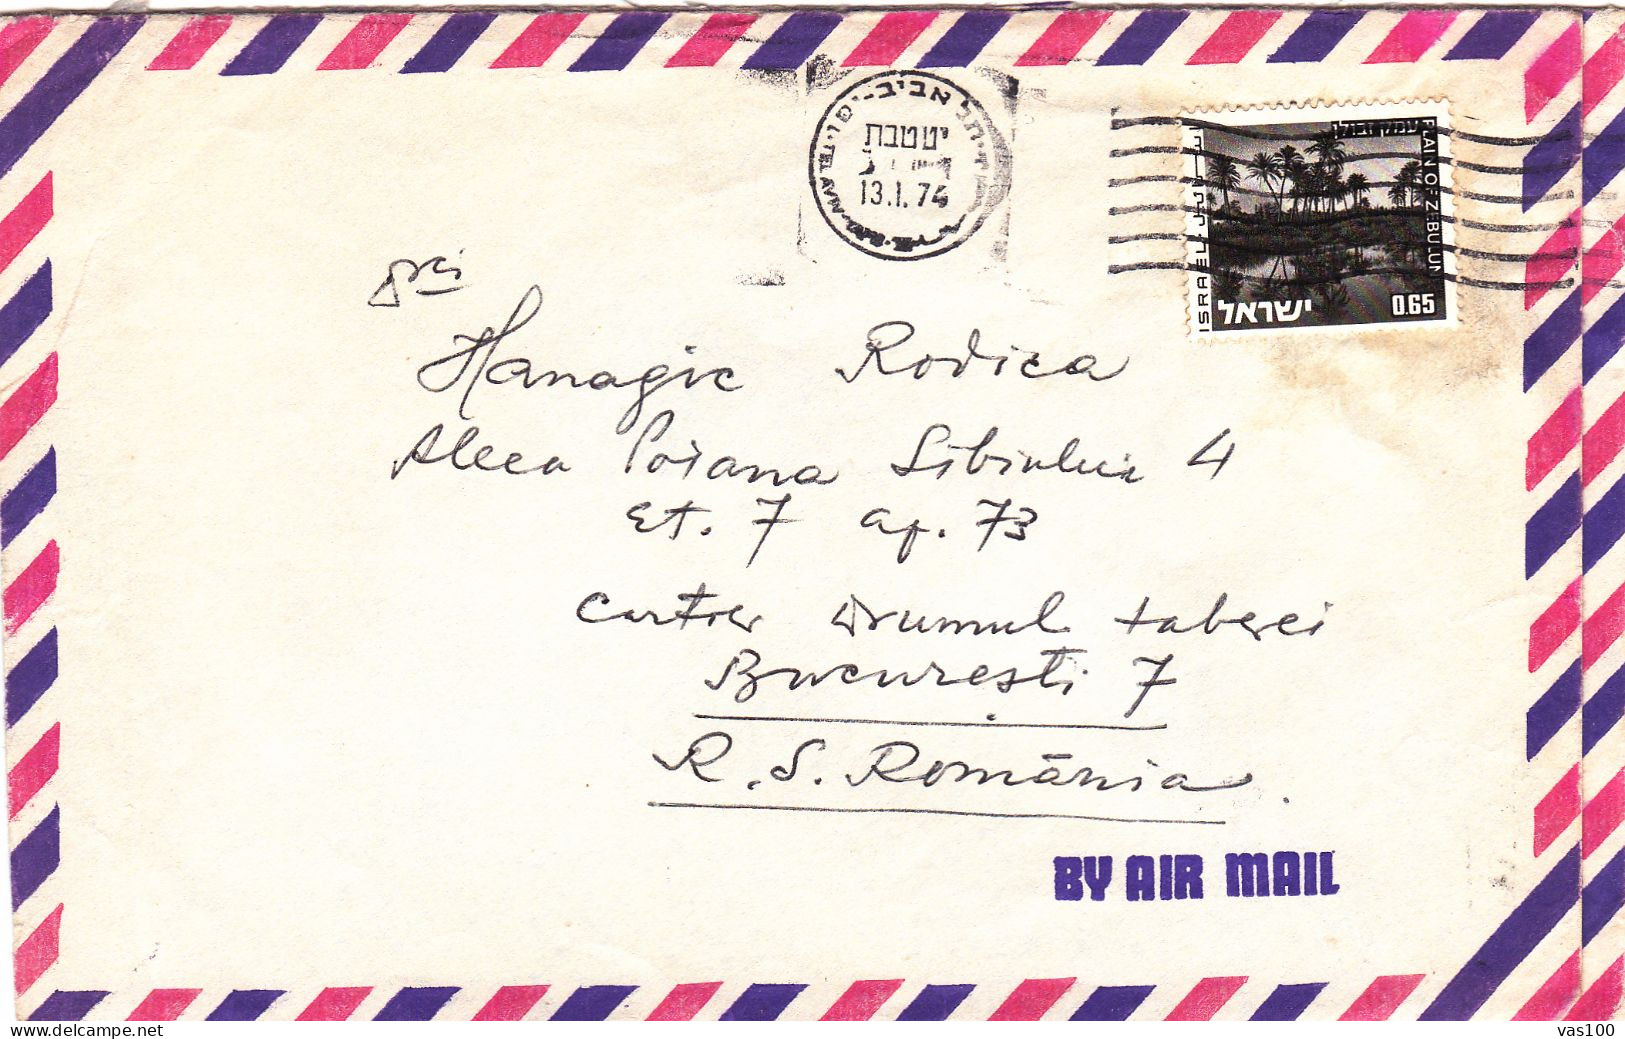 תל אביב-יפו
TEL AVIV
יט טבת
13.1.74
עמק זבולון
PLAIN OF ZEBULUN
ISRAEL
ישראל
0.65
Hanagic Rodica
Aleea Poiana Sibiului 4
Et. 7 ap. 73
Cartier Drumul taberei
București 7
R. S. România
BY AIR MAIL
delcampe.net
vas100